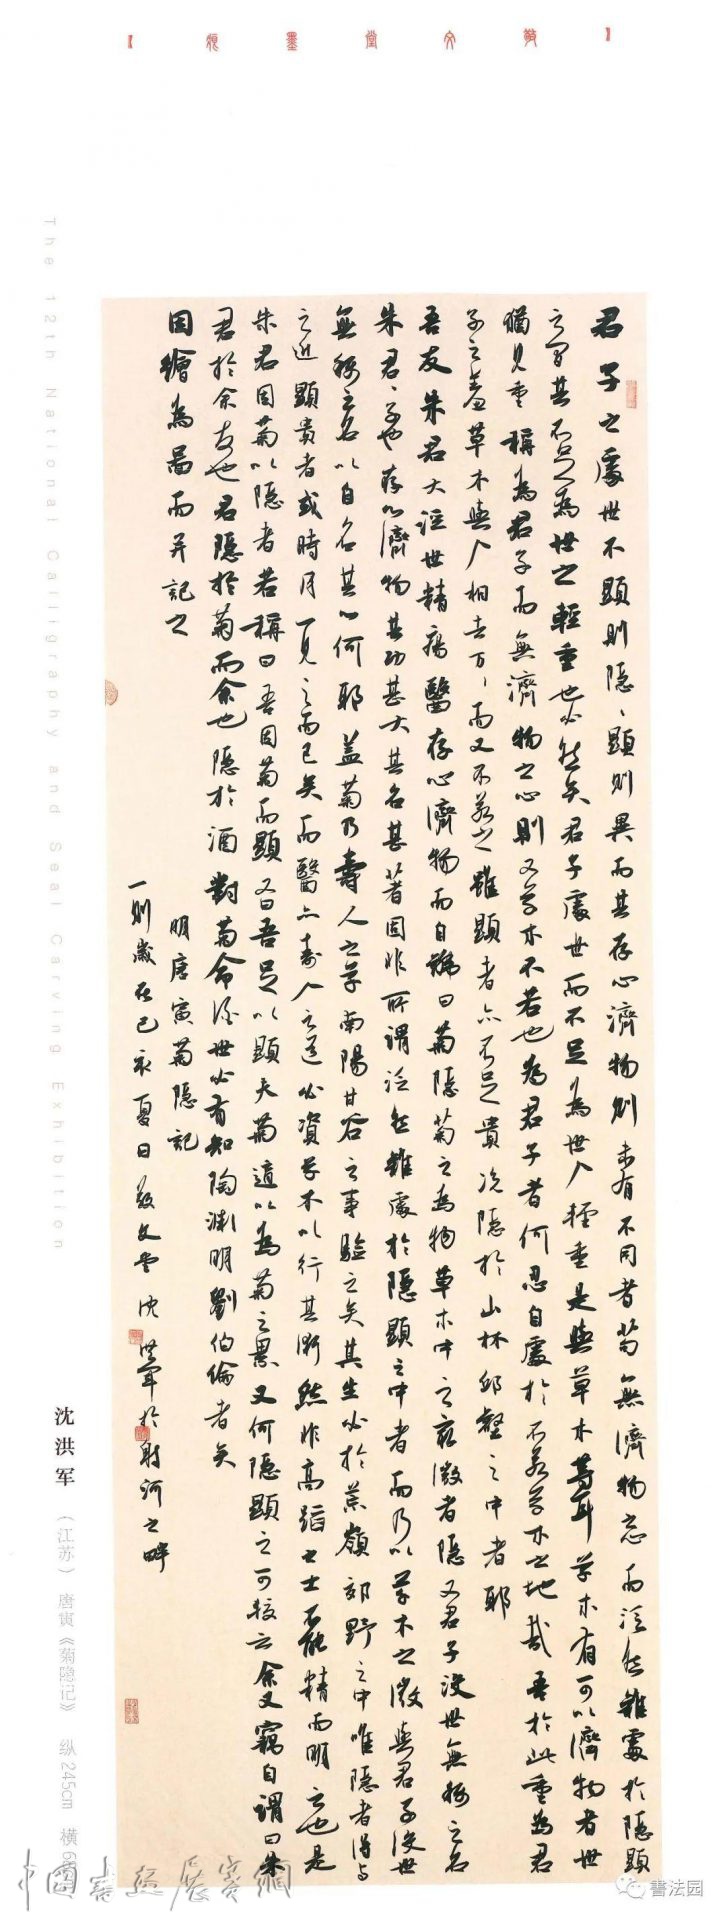 【痕墨堂文敬】
君子之處世不顯則隱〻顯則異而其存心濟物則未有不同者苟無濟物忘而泛然雜處於隱顯
之間其不足為世之輕重也必然矣君子處世而不足為世人輕重是與草木等耳草木有可以濟物者世
猶見重稱為君子而無濟物之心則又草木不若也為君子者何忍自處於不若草木之地哉吾於此重為君
子之羞草木與人相去万〻而又不若之雖顯者亦不足貴况隱於山林邱壑之中者耶
吾友朱君大涇世精瘍醫存心濟物而自號曰菊隱菊之為物草木中之最微者隱又君子没世無稱之名
朱君〻子也存心濟物其功甚大其名甚著固非所謂泛然雜處於隱顯之中者而乃以草木之微與君子没世
無稱之名以自名其心何耶盖菊乃壽人之草南陽甘谷之事驗之矣其生必於荒嶺郊野之中唯隱者得与
之近顯貴者或時月一見之而已矣而醫亦壽人之道必資草木以行其術然非高蹈之士不能精而明之也是
朱君因菊以隱者若稱曰吾因菊而顯又曰吾足以顯夫菊適以為菊之累又何隱顯之可較云余又竊自謂曰朱
君於余友也君隱於菊而余也隱於酒對菊命酒世必有知陶淵明劉伯倫者矣
因繪為啚而并記之
明唐寅菊隱記
一則歲在己亥夏日敬文堂沈洪軍於射河之畔
The 12th National Calligraphy and Seal Carving Exhibition
沈洪军（江苏）唐寅《菊隐记》 纵245cm 横6
中国書法展賽網
書法园